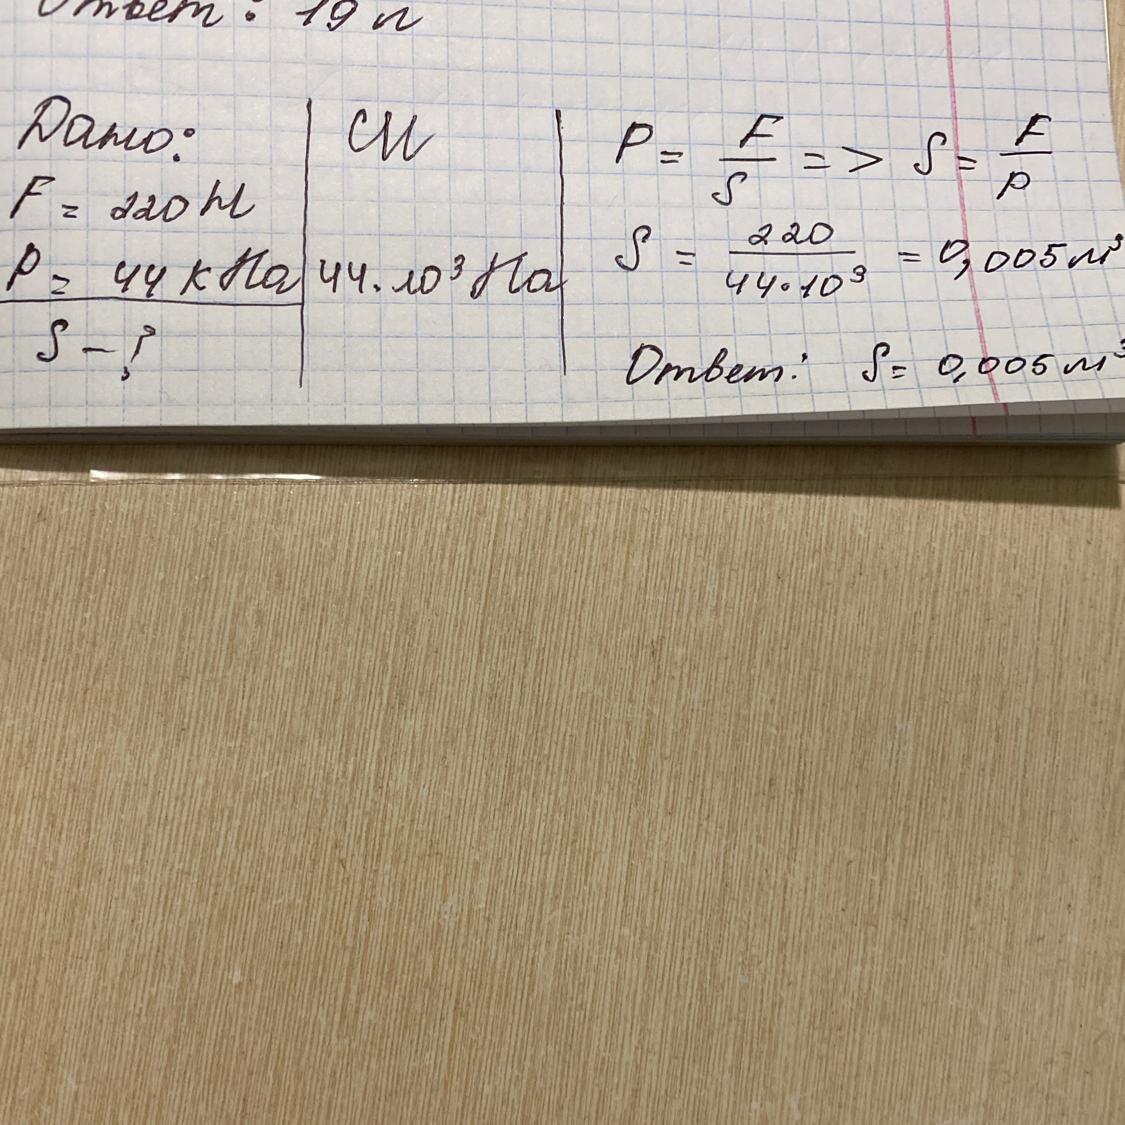 Ответ: 19 л
Дано:
F = 220 Н
P = 44 кПа
S - ?
СИ
44·10³ Па
P = F/S => S = F/p
S = 220/44·10³ = 0,005 м³
Ответ: S = 0,005 м³